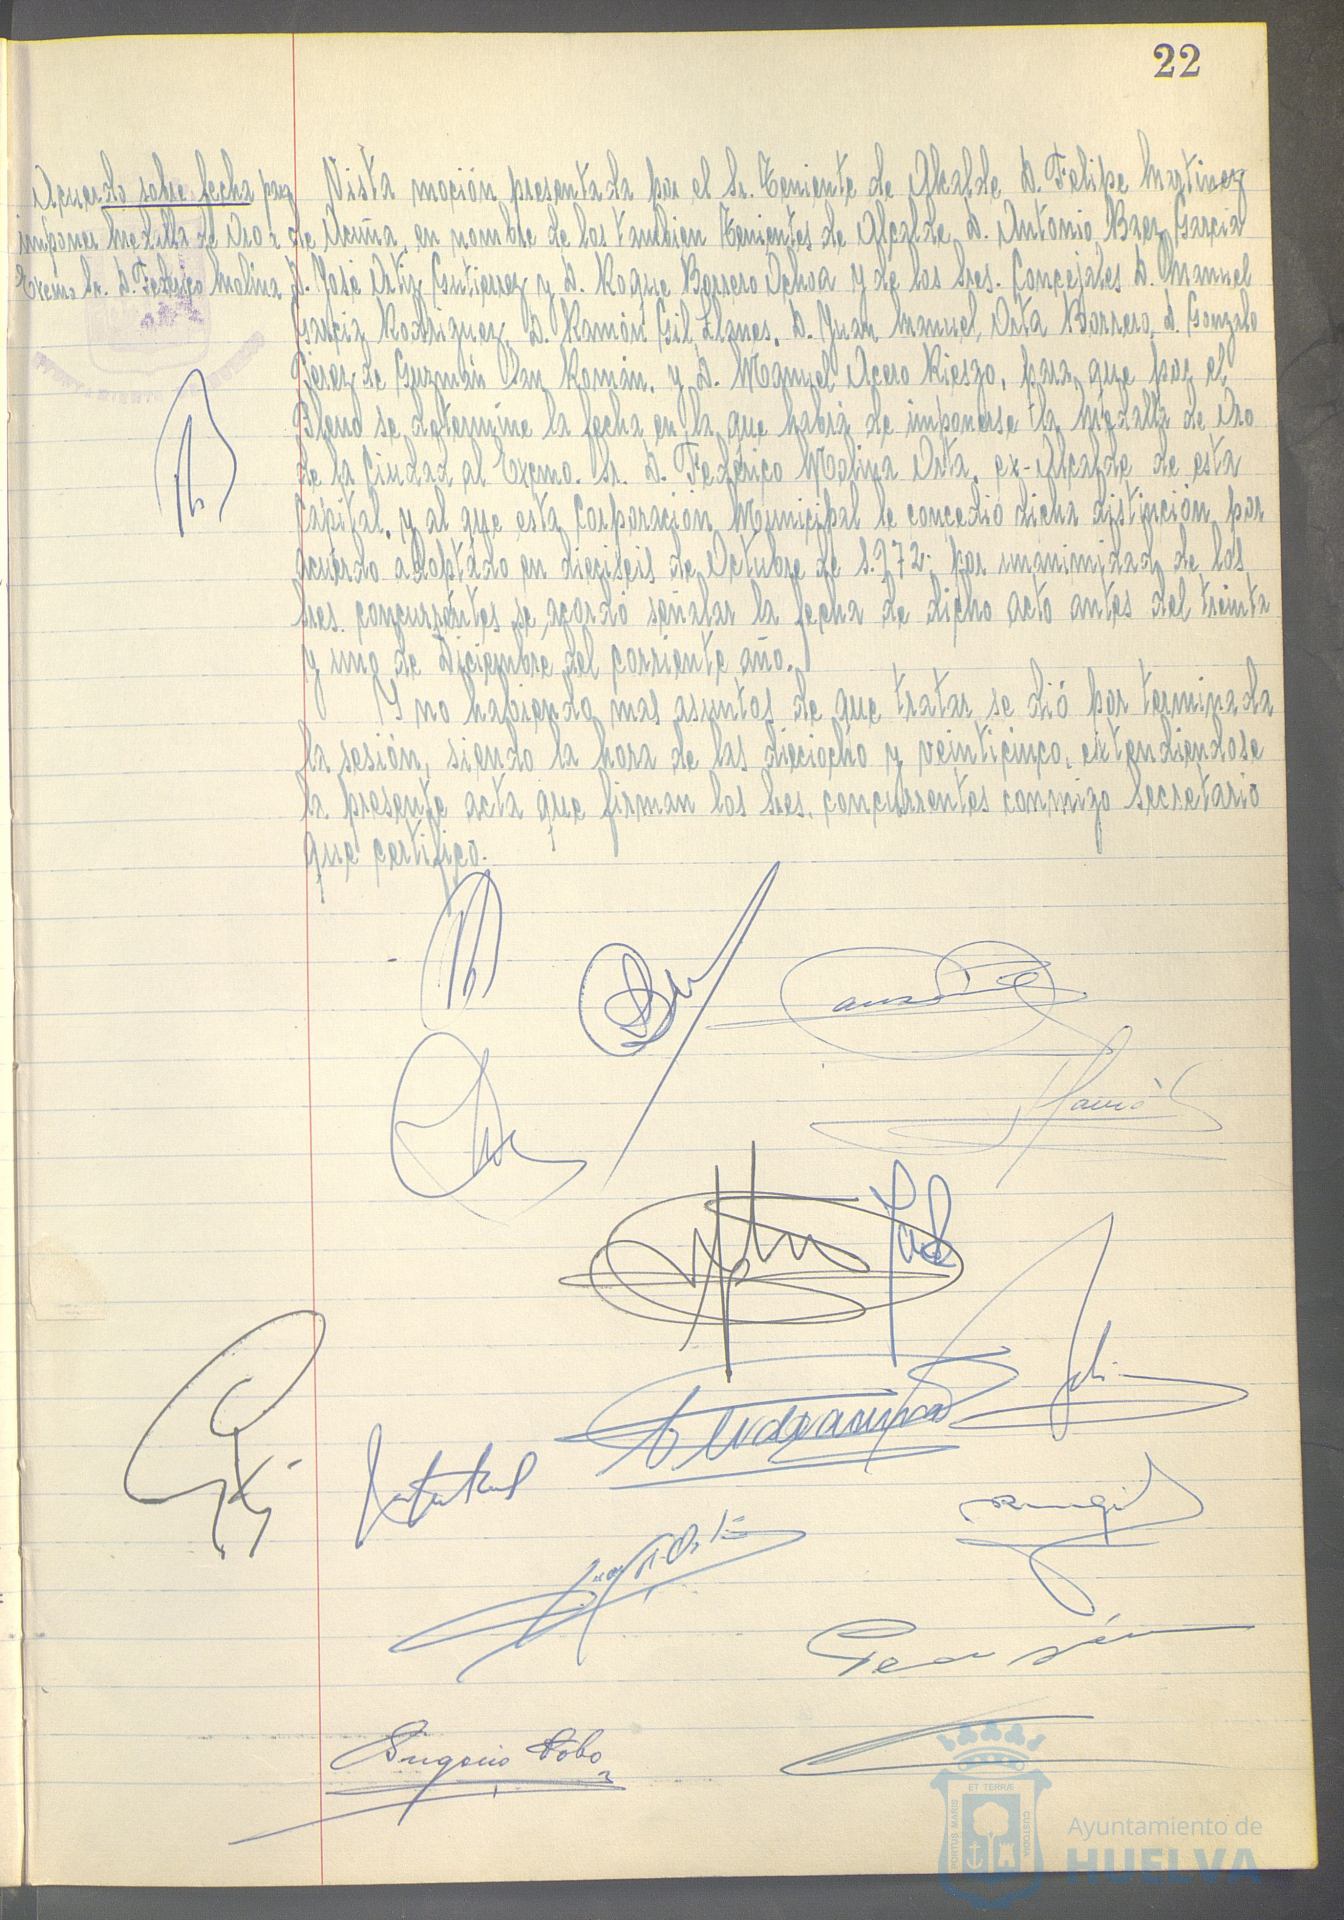 22
Acuerdo sobre fecha para
imponer Medalla de Oro a
Excmo Sr. D. Federico Molina
Vista moción presentada por el Sr. Teniente de Alcalde D. Felipe Martinez
de Acuña, en nombre de los tambien Tenientes de Alcalde, D. Antonio Baez Garcia
D. José Ortiz Gutierrez y D. Roque Borrero Ochoa y de los Sres. Concejales D. Manuel
Garcia Rodriguez, D. Ramón Gil Llanes, D. Juan Manuel Orta Borrero, D. Gonzalo
Pérez de Guzmán San Román, y D. Manuel Acero Riesgo, para que por el
Pleno se determine la fecha en la que habrá de imponerse la Medalla de Oro
de la Ciudad al Excmo. Sr. D. Federico Molina Orta, ex-Alcalde de esta
Capital, y al que esta Corporación Municipal le concedió dicha distinción por
acuerdo adoptado en dieciseis de Octubre de 1.972; por unanimidad de los
Sres. concurrentes se acordó señalar la fecha de dicho acto antes del treinta
y uno de Diciembre del corriente año.
Y no habiendo mas asuntos de que tratar se dió por terminada
la sesión, siendo la hora de las dieciocho y veinticinco, extendiendose
la presente acta que firman los Sres. concurrentes conmigo Secretario
que certifico.
Eugenio Bobo
ET TERRÆ
PORTUS MARIS
CUSTODIA
Ayuntamiento de
HUELVA